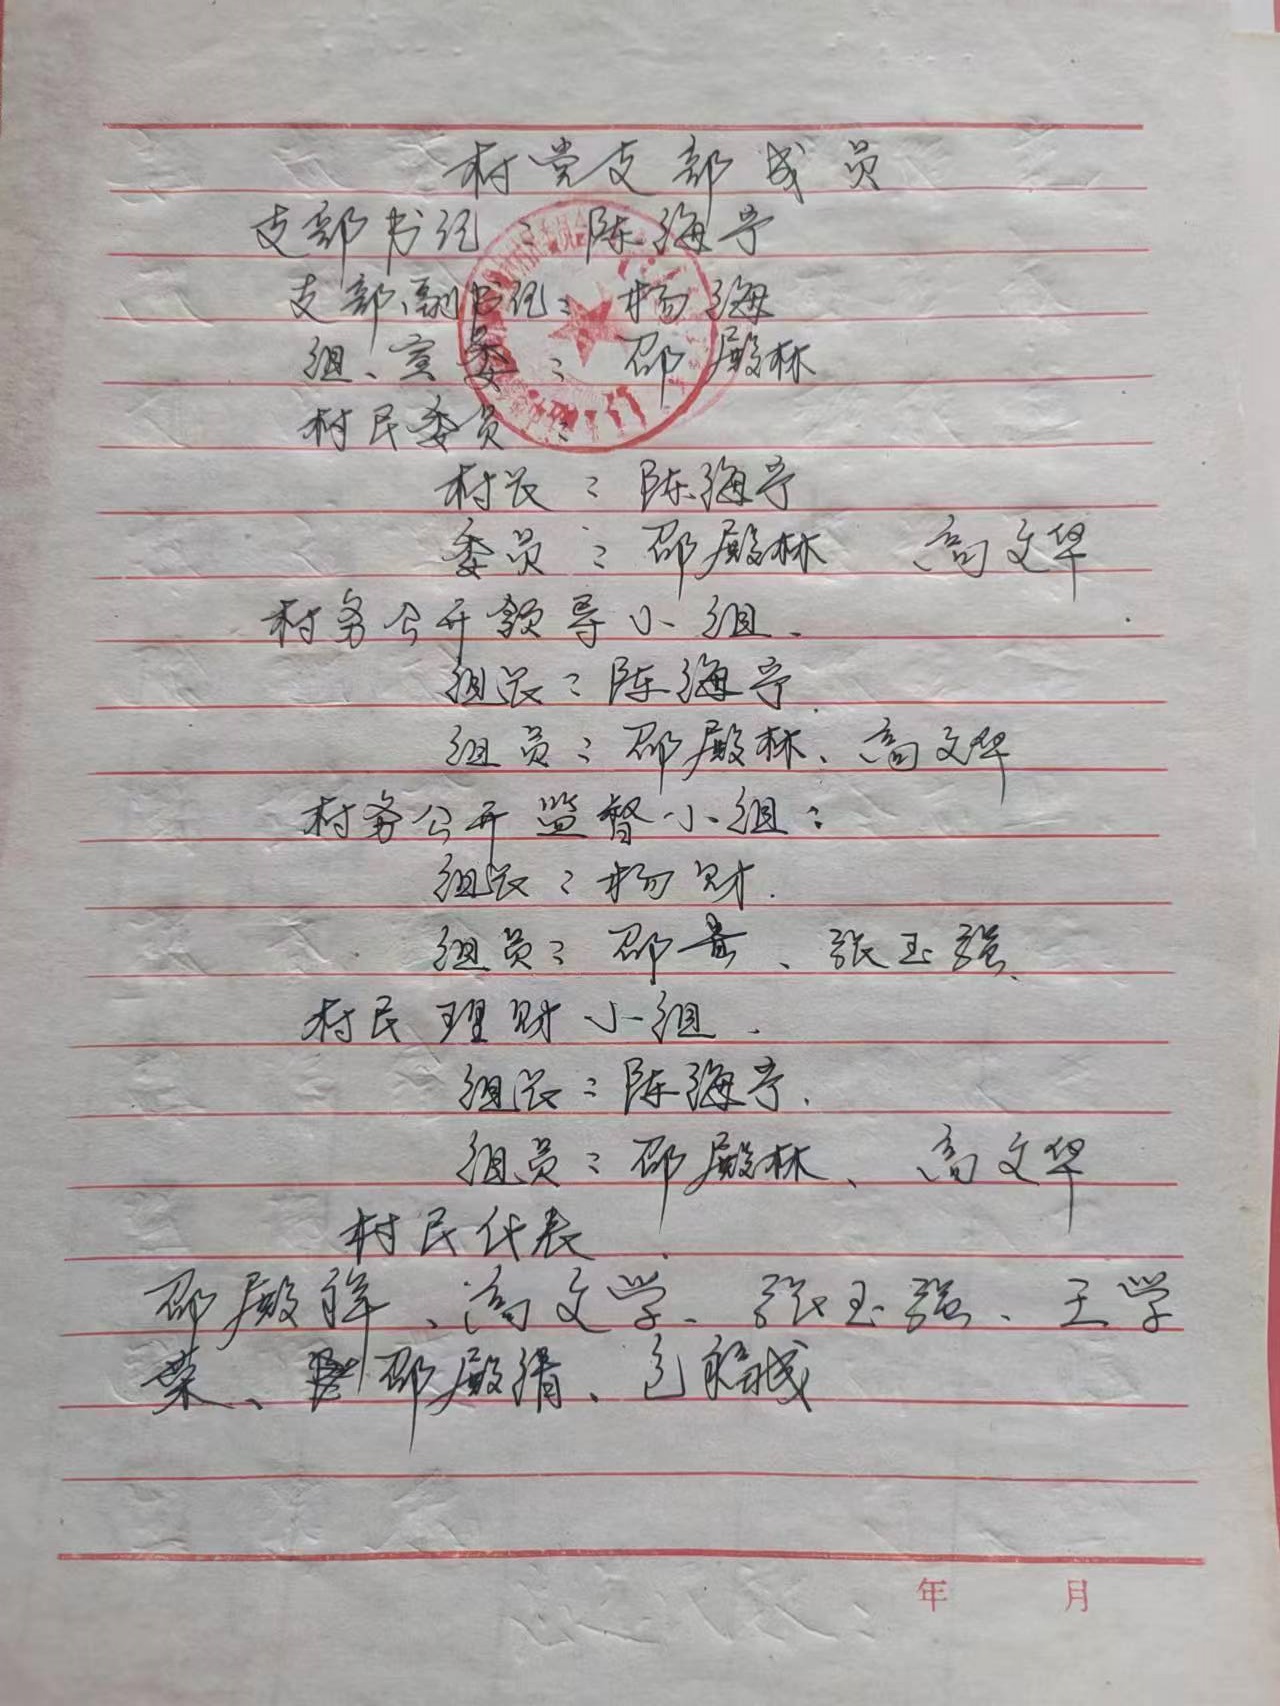 村党支部成员
支部书记：陈海亭
支部副书记：杨海
组、宣委：邵殿林
村民委员：
村长：陈海亭
委员：邵殿林 高文华
村务公开领导小组.
组长：陈海亭.
组员：邵殿林、高文华
村务公开监督小组：
组长：杨财.
组员：邵贵、张玉强.
村民理财小组.
组长：陈海亭.
组员：邵殿林、高文华
村民代表.
邵殿祥、高文学、张玉强、王学
荣、邵殿清、包福成
年 月